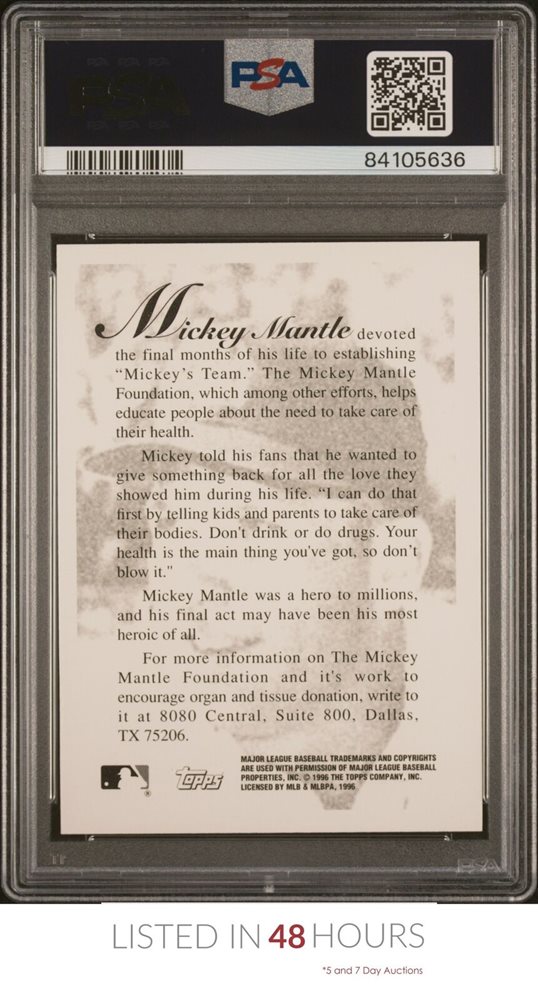 PSA PSA PSA
PSA
PSA PSA PSA
PSA
84105636
Mickey Mantle devoted
the final months of his life to establishing
“Mickey’s Team.” The Mickey Mantle
Foundation, which among other efforts, helps
educate people about the need to take care of
their health.
Mickey told his fans that he wanted to
give something back for all the love they
showed him during his life. “I can do that
first by telling kids and parents to take care of
their bodies. Don't drink or do drugs. Your
health is the main thing you've got, so don’t
blow it."
Mickey Mantle was a hero to millions,
and his final act may have been his most
heroic of all.
For more information on The Mickey
Mantle Foundation and it's work to
encourage organ and tissue donation, write to
it at 8080 Central, Suite 800, Dallas,
TX 75206.
MAJOR LEAGUE BASEBALL TRADEMARKS AND COPYRIGHTS
ARE USED WITH PERMISSION OF MAJOR LEAGUE BASEBALL
PROPERTIES, INC. © 1996 THE TOPPS COMPANY, INC.
LICENSED BY MLB & MLBPA, 1996
®
Topps
PSA
LISTED IN 48 HOURS
*5 and 7 Day Auctions